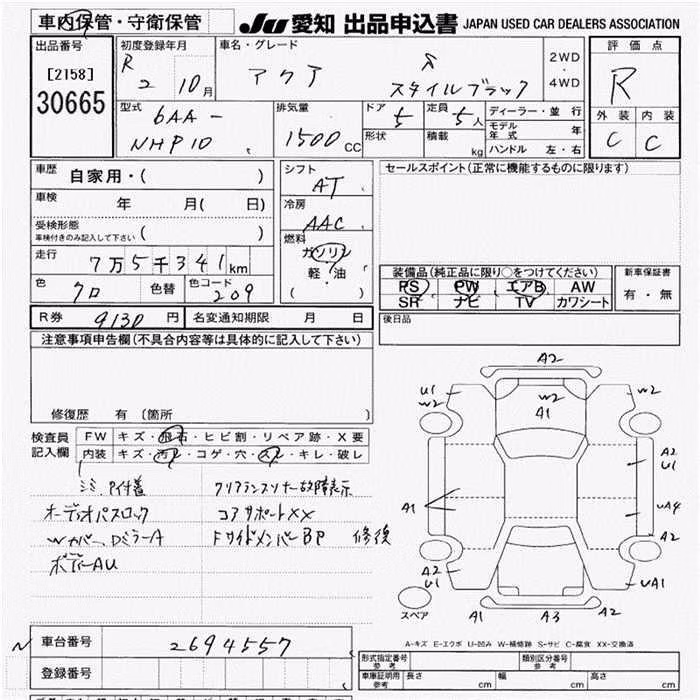 車内保管・守衛保管
JU 愛知 出品申込書 JAPAN USED CAR DEALERS ASSOCIATION
出品番号
[2158]
30665
初度登録年月
R 2 10月
車名・グレード
アクア S スタイルブラック
2WD
・
4WD
評価点
R
外装 内装
C C
型式
6AA-
NHP10
排気量
1500 CC
ドア 5
形状
定員 5人
積載 kg
ディーラー・並行
モデル年式 年
ハンドル 左・右
車歴
自家用・( )
車検
年 月( 日)
受検形態
車検付きのみ記入して下さい ( )
走行
7万5千341km
色 クロ 色替 色コード 209
シフト
AT
冷房
AAC
燃料
ガソリン
軽・油
( )
セールスポイント(正常に機能するものに限ります)
装備品(純正品に限り○をつけてください)
PS PW エアB AW
SR ナビ TV カワシート
新車保証書
有・無
R券 9130円 名変通知期限 月 日
後日品
注意事項申告欄(不具合内容等は具体的に記入して下さい)
修復歴 有 〔箇所 〕
検査員
記入欄
FW キズ・飛石・ヒビ割・リペア跡・X要
内装 キズ・汚レ・コゲ・穴・スレ・キレ・破レ
シミ、P付着
オーディオパスロック
Wカバー、DミラーA
ボディーAU
クリアランスソナー故障表示
コアサポートXX
FサイドメンバーBP 修復
A2
U1
W2
W2
A1
W2
A2
U1
A1
UA4
A2
A2
U1
UA1
A1
A3
A2
スペア
A-キズ E-エクボ U-凹み W-補修跡 S-サビ C-腐食 XX-交換済
N
車台番号 2694557
登録番号
形式指定番号
参考
類別区分番号
参考
車庫証明用
参考
長さ cm 幅 cm 高さ cm